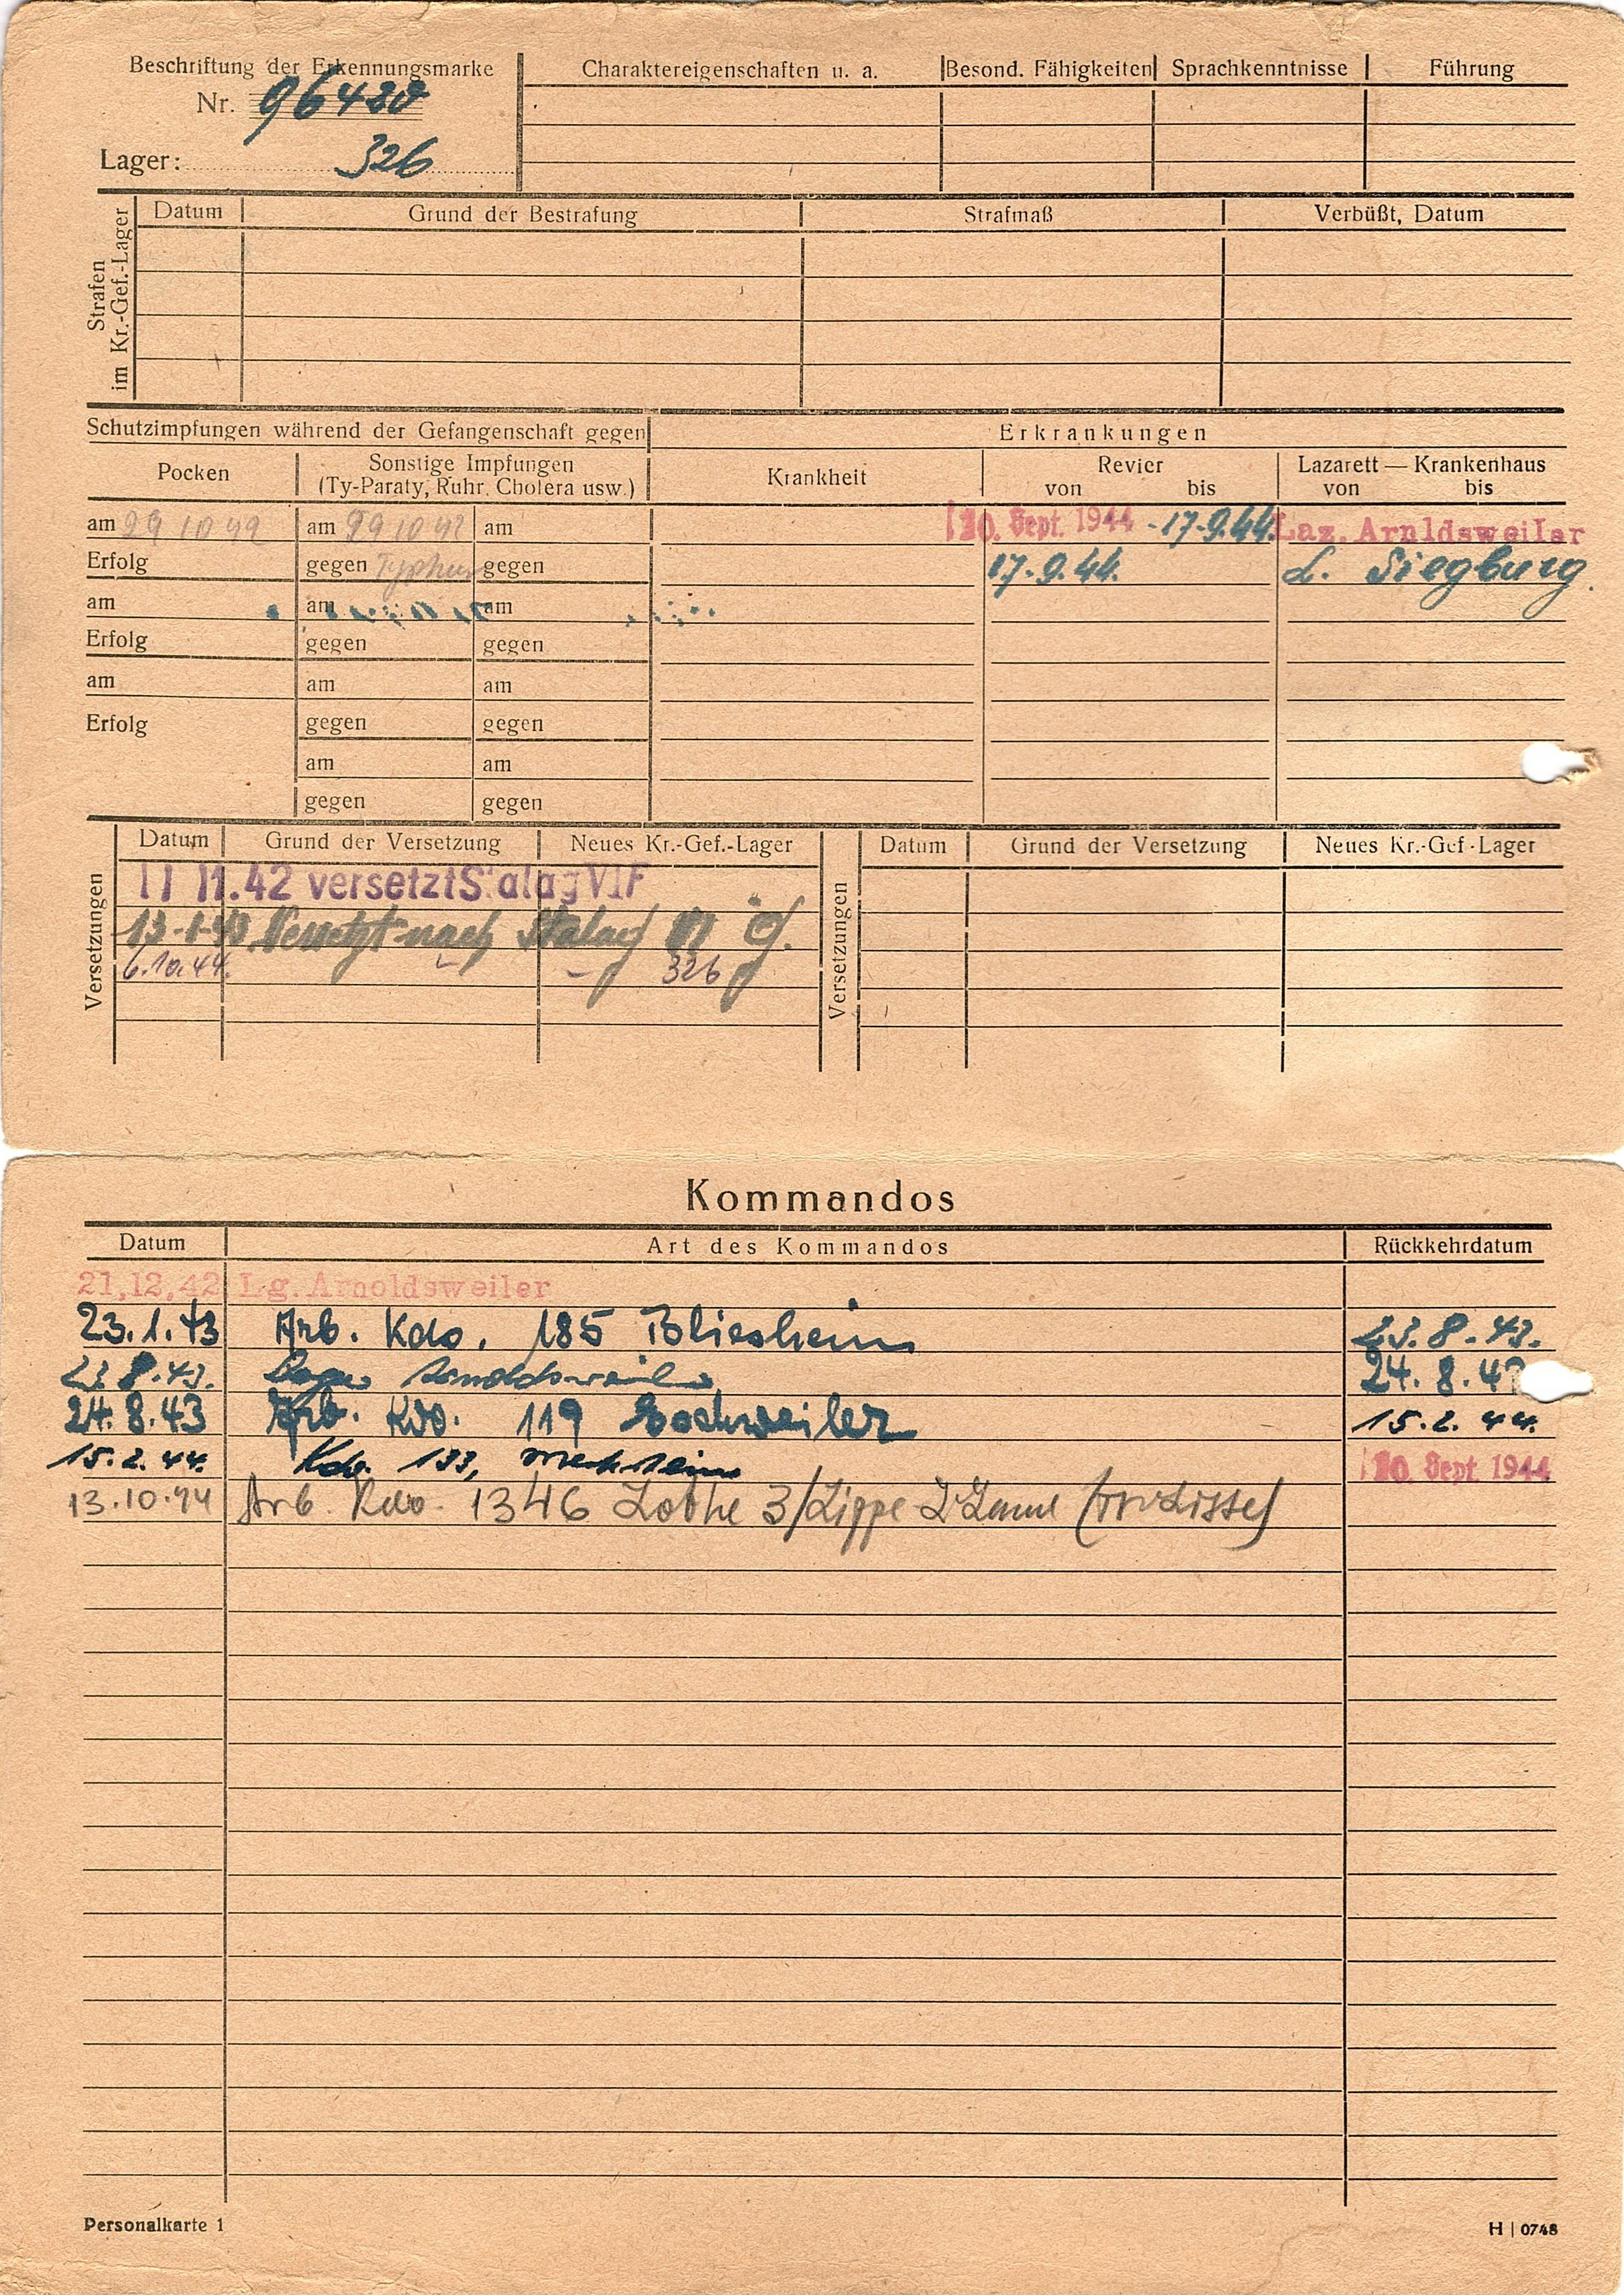 Beschriftung der Erkennungsmarke
Nr. 96480
Lager: 326
Charaktereigenschaften u. a. Besond. Fähigkeiten Sprachkenntnisse Führung
Strafen im Kr.-Gef.-Lager
Datum Grund der Bestrafung Strafmaß Verbüßt, Datum
Schutzimpfungen während der Gefangenschaft gegen
Erkrankungen
Pocken Sonstige Impfungen (Ty-Paraty, Ruhr, Cholera usw.)
Krankheit Revier von bis Lazarett — Krankenhaus von bis
am 29 10 42 am 29 10 42 am
20. Sept. 1944 - 17.9.44. Laz. Arnoldsweiler
Erfolg gegen Typhus gegen
17.9.44. L. Siegburg.
am am am
Erfolg gegen gegen
am am am
Erfolg gegen gegen
am am
gegen gegen
Versetzungen
Datum Grund der Versetzung Neues Kr.-Gef.-Lager
Versetzungen
Datum Grund der Versetzung Neues Kr.-Gef.-Lager
11 11.42 versetzt Stalag VI F
Versetzt nach Stalag VI G.
6.10.44. 326
Kommandos
Datum Art des Kommandos Rückkehrdatum
21,12,42 Lg. Arnoldsweiler
23.1.43 Arb. Kdo. 185 Bliesheim 23.8.43.
23.8.43. Lager Arnoldsweiler 24.8.43
24.8.43 Arb. Kdo. 119 Eschweiler 15.2.44.
15.2.44. Kdo. 133, 20. Sept. 1944
13.10.44 Arb. Kdo. 1346 3/Lippe
Personalkarte 1
H | 0748